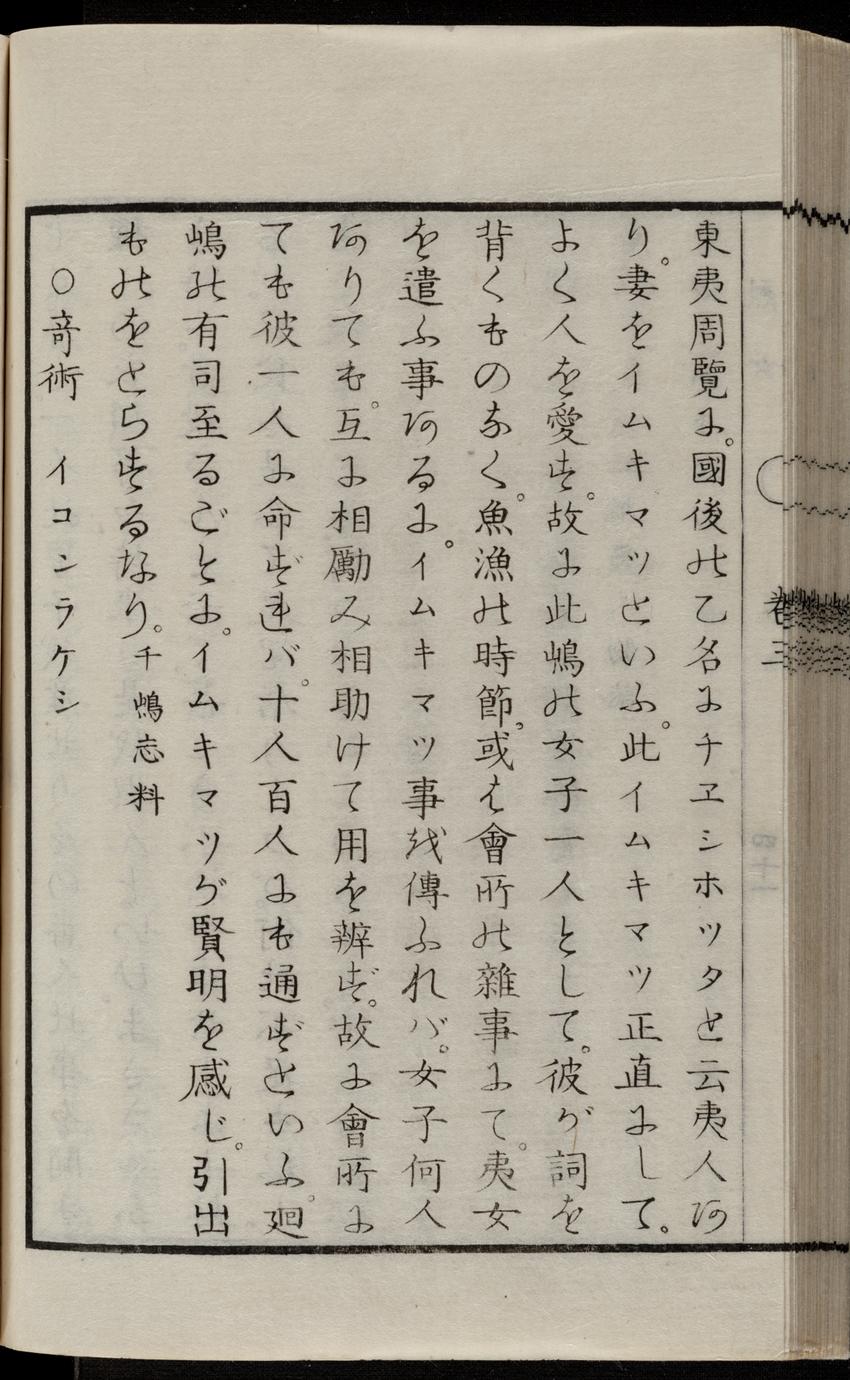 東夷周覽に。國後の乙名にチヱシホツタと云夷人あ
り。妻をイムキマツといふ。此イムキマツ正直にして。
よく人を愛す。故に此嶋の女子一人として。彼が詞を
背くものなく。魚漁の時節。或は會所の雜事にて。夷女
を遣ふ事あるに。イムキマツ事を傳ふれバ。女子何人
ありても。互に相勵み相助けて用を辨ず。故に會所に
ても彼一人に命ずれバ。十人百人にも通ずといふ。廻
嶋の有司至るごとに。イムキマツが賢明を感じ。引出
ものをとらするなり。千嶋志料
〇竒術　イコンラケシ
卷三